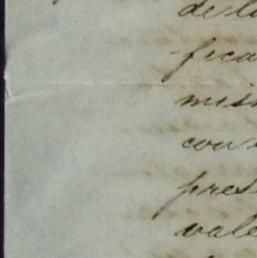 de l
fica
mis
con
pres
vale